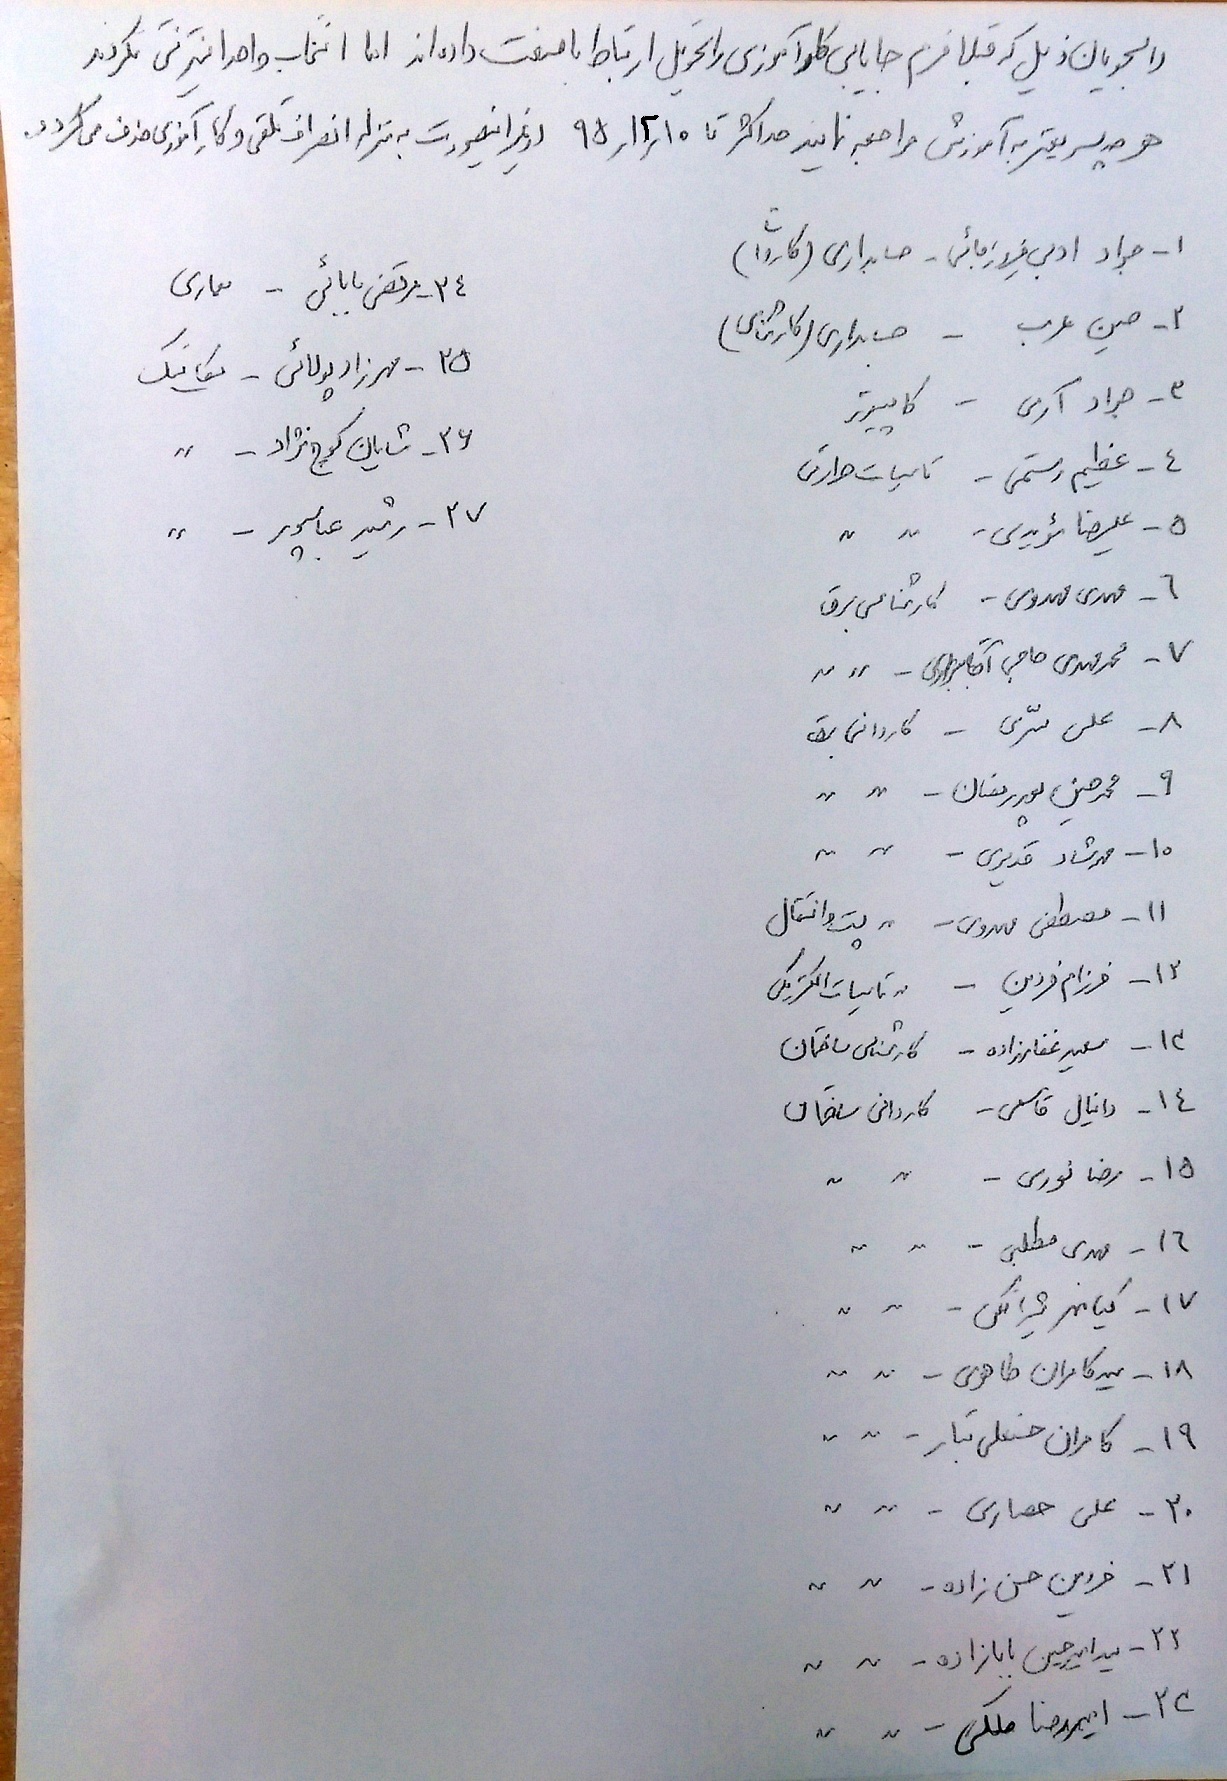 دانشجویان ذیل که قبلا فرم جایابی کارآموزی را تحویل ارتباط با صنعت داده‌اند اما انتخاب واحد اینترنتی نکردند
هر چه سریعتر به آموزش مراجعه نمایند حداکثر تا ۹۵/۱۲/۱۰ در غیر اینصورت به منزله انصراف تلقی و کارآموزی حذف می‌گردد.
۱- جواد ادبی فیروزجائی - حسابداری (کاردانی)
۲- حسین عرب - حسابداری (کارشناسی)
۳- جواد آرمی - کامپیوتر
۴- عظیم رستمی - تاسیسات حرارتی
۵- علیرضا مؤیدی - " "
۶- مهدی مهدوی - کارشناسی برق
۷- محمدمهدی حاجی آقابزازی - " "
۸- علی شری - کاردانی برق
۹- محمدحسین پوررمضان - " "
۱۰- مهرشاد قدیری - " "
۱۱- مصطفی مهدوی - " پست و انتقال
۱۲- فرزام فردین - " تاسیسات الکتریکی
۱۳- سعید غفارزاده - کارشناسی ساختمان
۱۴- دانیال قاسمی - کاردانی ساختمان
۱۵- رضا نوری - " "
۱۶- مهدی مطلبی - " "
۱۷- کیانمهر - " "
۱۸- سیدکامران طاهری - " "
۱۹- کامران حسنعلی تبار - " "
۲۰- علی حصاری - " "
۲۱- فردین حسن زاده - " "
۲۲- سیدامیرحسین بابازاده - " "
۲۳- امیررضا ملکی - " "
۲۴- مرتضی بابائی - معماری
۲۵- مهرزاد پولائی - مکانیک
۲۶- شایان کوچ نژاد - "
۲۷- رشید عباسپور - "